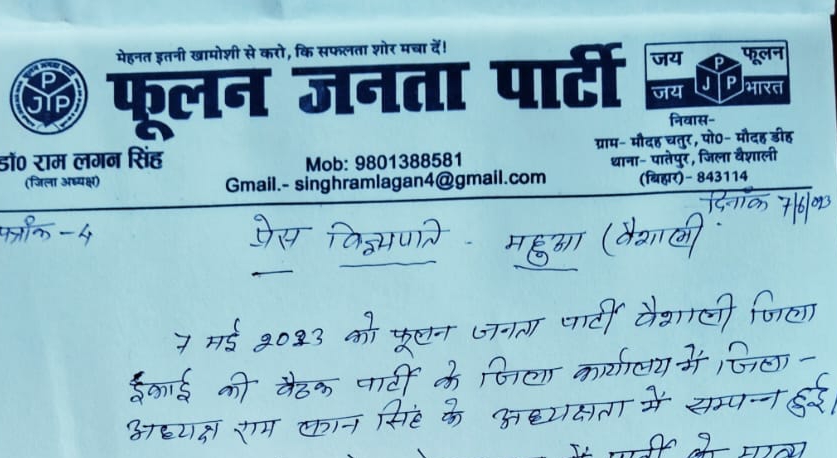 मेहनत इतनी खामोशी से करो, कि सफलता शोर मचा दें!
P
J P
फूलन जनता पार्टी
जय फूलन
जय भारत
P
J P
डॉ0 राम लगन सिंह
(जिला अध्यक्ष)
Mob: 9801388581
Gmail.- singhramlagan4@gmail.com
निवास-
ग्राम- मौदह चतुर, पो0- मौदह डीह
थाना- पातेपुर, जिला वैशाली
(बिहार)- 843114
पत्रांक - 4
दिनांक 7/6/
प्रेस विज्ञप्ति - महुआ (वैशाली)
7 मई 2023 को फूलन जनता पार्टी वैशाली जिला
ईकाई की बैठक पार्टी के जिला कार्यालय में जिला -
अध्यक्ष राम लगन सिंह के अध्यक्षता में सम्पन्न हुई।
पार्टी के मुख्य